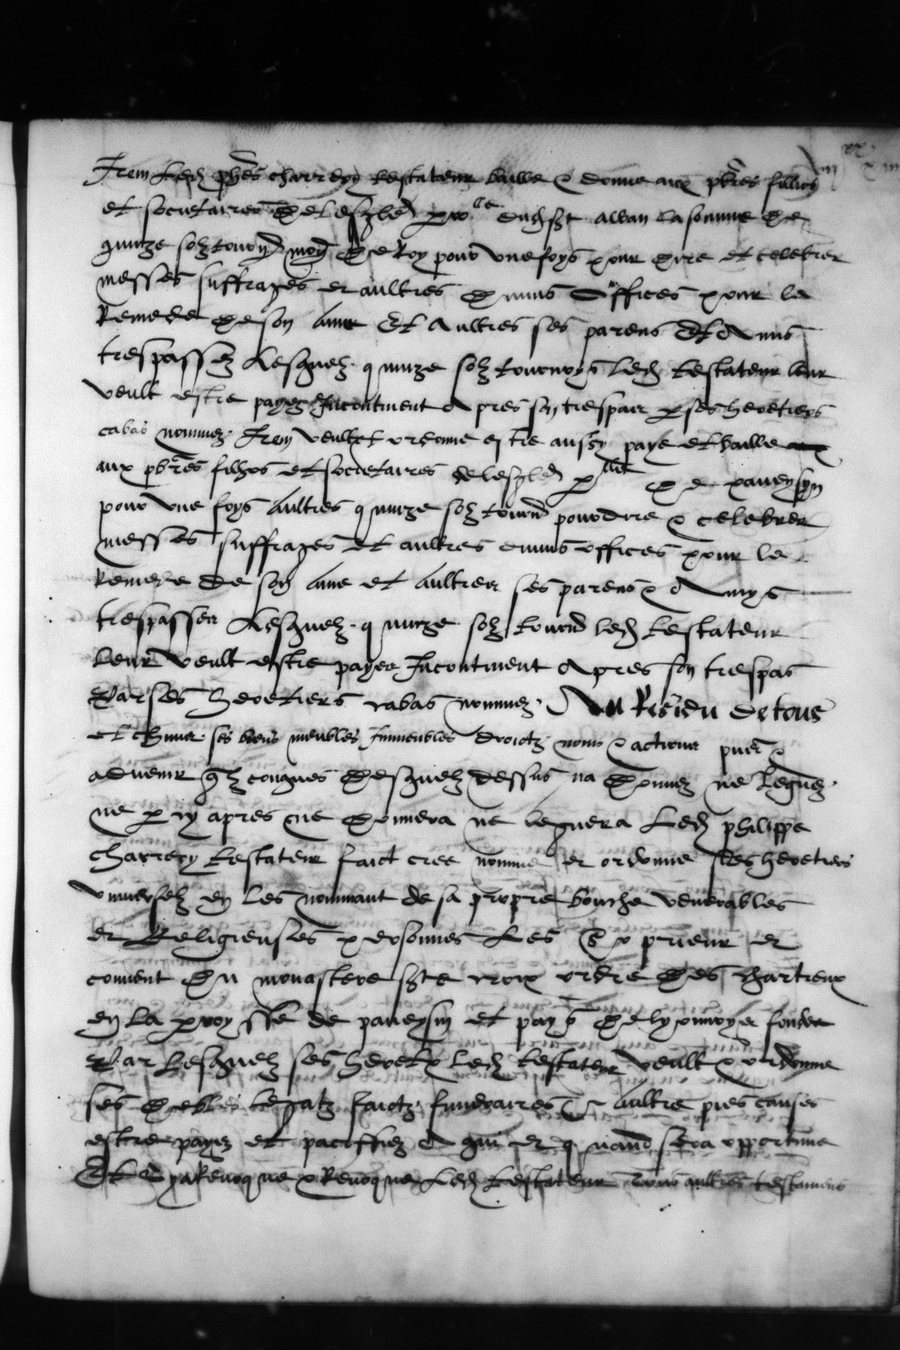 Item Led phes charrery testateur baille & donne aux pbres filliez
et societaires de leglise
quinze solz tourn monn de Roy pour une foys pour dire et celebrer
messes suffrages et aultres divins offices pour le
Remede de son ame Et Aultres ses parens Et Amis
trespassez Lesquelz quinze solz tournoys Led testateur leur
veult estre payez Incontinent Apres son trespas p ses heretiers
cabas nommez Item veult et ordonne estre aussy paye et baille
aux pbres filhos et societaires de leglise p de paueysin
pour une foys aultres quinze solz tourn pour dire & celebrer
messes suffrages et aultres divins offices pour le
Remede de son ame et aultres ses parens & Amys
trespasses Lesquelz quinze solz tourn led testateur
leur veult estre payer Incontinent Apres son trespas
Par ses heretiers cabas nommez Au Residu de tous
et chun ses biens meubles Immeubles droictz noms & actions pnts &
advenir qlz conques desquelz dessus na donnez ne legues
ne p cy apres ne donnera ne leguera Led philippe
charrery testateur faict cree nomme et ordonne ses heretiers
universelz en les nommant de sa propre bouche venerables
et Religieuses personnes Les prieur et
convent du monastere ste croix ordre des chartreux
en la parroysse de paveysin et pays de lyonnoys fonde
Par lesquelz ses heretiers led testateur veult & ordonne
ses debtes legatz faictz funeraires & aultre pies causes
estre payez et paciffiez A qui et quand sera opportune
Et Revoque & Revoque Led testateur tous aultres testamens